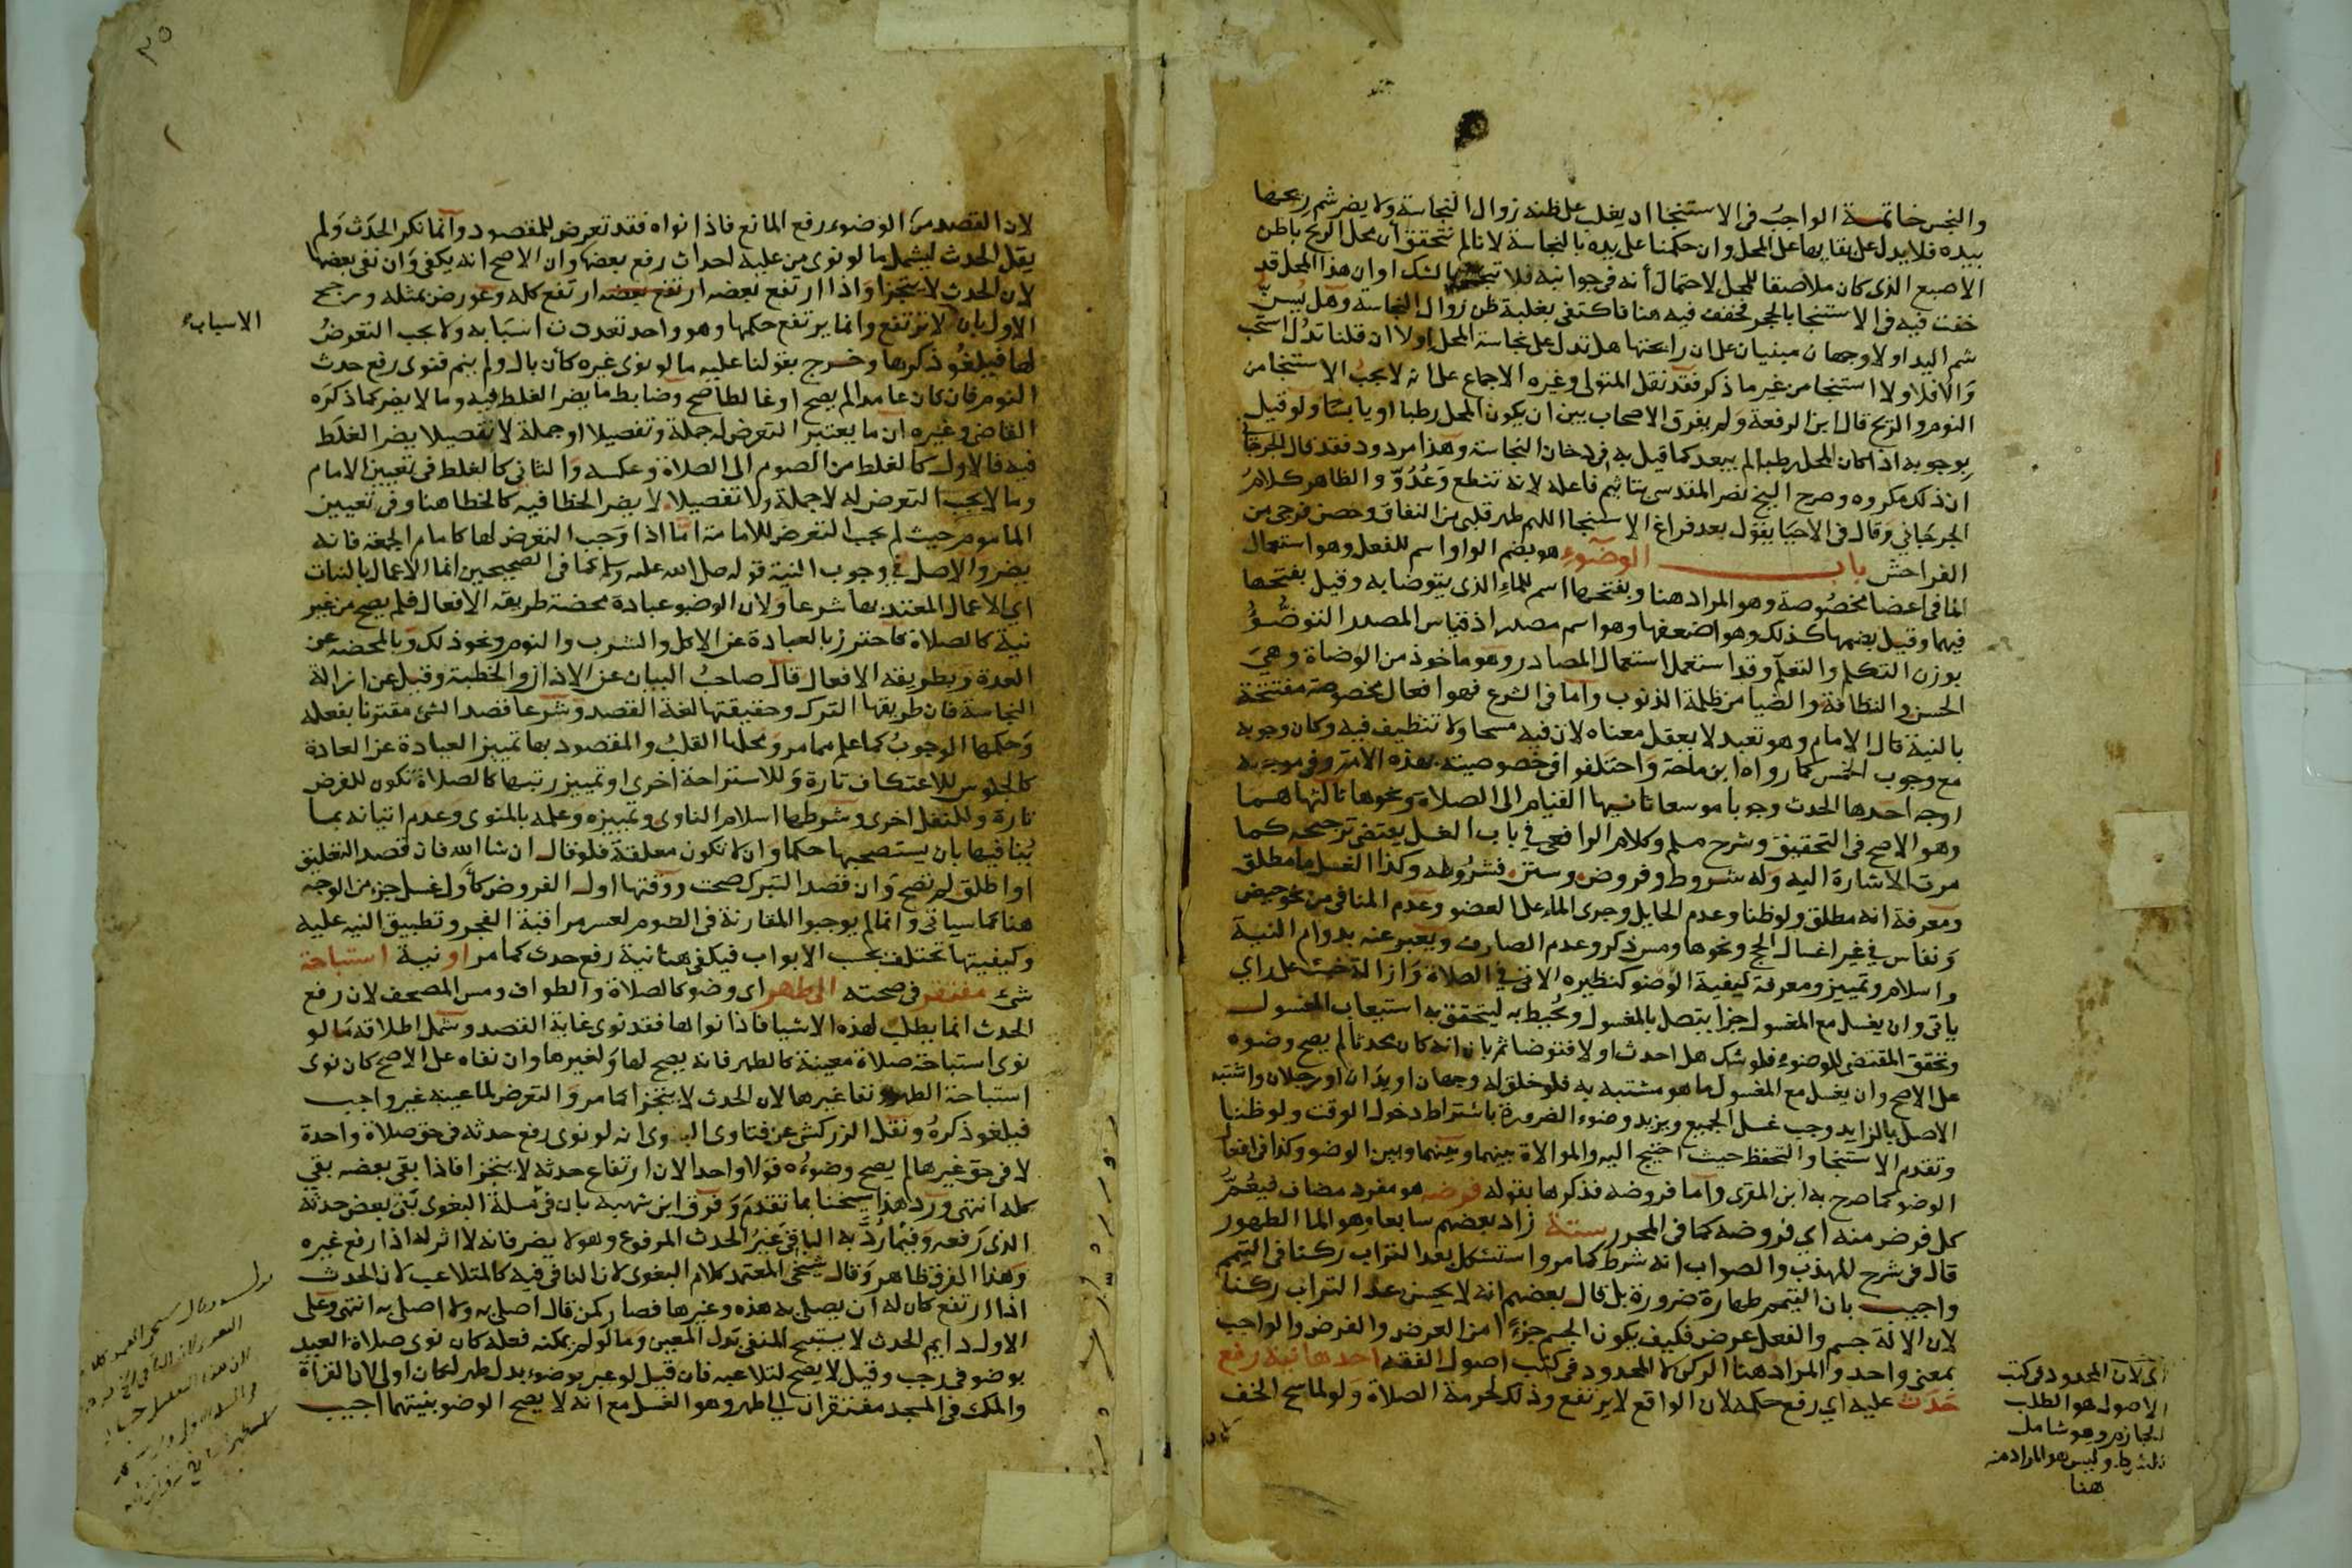 والنجس خاتمة الواجبُ في الاستنجا ان يغلب على ظنه زوال النجاسة ولا يضر شم ريحها
بيده فلا يدل على بقايها على المحل وان حكمنا على يده بالنجاسة لانا لم نتحقق أن محل الريح باطن
الاصبع الذى كان ملاصقا للمحل لاحتمال أنه في جوانبه فلا بالشك او ان هذا المحل قد
خفف فيه في الاستنجا بالحجر فخفف فيه هنا فاكتفى بغلبة ظن زوال النجاسة وهل يُسنّ
شم اليد اولا وجهان مبنيان على ان رائحتها هل تدل على نجاسة المحل اولا ان قلنا تدل استحب
والا فلا ولا استنجا من غير ما ذكر فقد نقل المتولى وغيره الاجماع على انه لا يجب الاستنجا من
النوم والريح قال ابن الرفعة ولم يفرق الاصحاب بين ان يكون المحل رطبا او يابسا ولو قيل
بوجوبه اذا كان المحل رطبا لم يبعد كما قيل به في دخان النجاسة وهذا مردود فقد قال الجرجاني
ان ذلك مكروه وصرح الشيخ نصر المقدسى بتاثيم فاعله لانه تنطع وعُدُوّ والظاهر كلامُ
الجرجاني وقال في الاحيا يقول بعد فراغ الاستنجا اللهم طهر قلبي من النفاق وحصن فرجى من
الفواحش باب الوضوء هو بضم الواو اسم للفعل وهو استعمال
الما في اعضا مخصُوصة وهو المراد هنا وبفتحها اسم للماء الذي يتوضا به وقيل بفتحها
فيهما وقيل بضمهما كذلك وهو اضعفها وهو اسم مصدر اذ قياس المصدر التوضُّؤُ
بوزن التكلم والتعلم وقد استعمل استعمال المصادر وهو ماخوذ من الوضاة وهيَ
الحسن والنظافة والضيا من ظلمة الذنوب واما في الشرع فهو افعال مخصوصة مفتتحة
بالنية قال الامام وهو تعبد لا يعقل معناه لان فيه مسحا ولا تنظيف فيه وكان وجوبه
مع وجوب الخمس كما رواه ابن ماجة واختلفوا في خصوصيته بهذه الامة وفي موجبه
اوجه احدها الحدث وجوبا موسعا ثانيها القيام الى الصلاة ونحوها ثالثها همـا
وهو الاصح في التحقيق وشرح مسلم وكلام الرافعي في باب الغسل يقتضي ترجيحه كما
مرت الاشارة اليه وله شروط وفروض وسنن فشرُوطه وكذا الغسل ما مطلق
ومعرفة انه مطلق ولو ظنا وعدم الحايل وجرى الماء على العضو وعدم المنافي من نحو حيض
ونفاس في غير اغسال الحج ونحوها ومس ذكر وعدم الصارف ويعبر عنه بدوام النية
واسلام وتمييز ومعرفة كيفية الوضو كنظيره الاتي في الصلاة وازالة خبث على راي
ياتي وان يغسل مع المغسول جزا يتصل بالمغسول ويُحيط به ليتحقق به استيعاب المغسول
وتحقق المقتضى للوضوء فلو شك هل احدث اولا فتوضا ثم بان انه كان محدثا لم يصح وضوه
على الاصح وان يغسل مع المغسول ما هو مشتبه به فلو خلق له وجهان او يدان او رجلان واشتبه
الاصل بالزايد وجب غسل الجميع ويزيد وضوء الضرورة باشتراط دخول الوقت ولو ظنا
وتقدم الاستنجا والتحفظ حيث احتيج اليه والموالاة بينهما وبينهما وبين الوضو وكذا في افعال
الوضو كما صرح به ابن المقرى واما فروضه فذكرها بقوله فرضه هو مفرد مضاف فيعُمّ
كل فرض منه اي فروضه كما في المحرر ستة زاد بعضهم سابعا وهو الما الطهور
قال في شرح المهذب والصواب انه شرط كما مر واستشكل بعد التراب ركنا في التيمم
واجيب بان التيمم طهارة ضرورة بل قال بعضهم انه لا يحسن عد التراب ركنا
لان الالة جسم والفعل عرض فكيف يكون الجسم جزءًا من العرض والفرض والواجب
بمعنى واحد والمراد هنا الركن لا المحدود في كتب اصول الفقه احدها نية رفع
حَدَث عليه اي رفع حكمه لان الواقع لا يرتفع وذلك لحرمة الصلاة ولو لماسح الخف
اى لان المحدود في كتب
الاصول هو الطلب
الجازم وهو شامل
للشرط وليس هو المراد منه
هنا
٣٥
لان القصد من الوضوء رفع المانع فاذا نواه فقد تعرض للمقصود وانما نكر الحدَث ولم
يقل الحدث ليشمل ما لو نوى من عليه احداث رفع بعضها وان الاصح انه يكفى وان نفى بعضها
لان الحدث لا يتجزا واذا ارتفع بعضه ارتفع كله وعورض بمثله ورجح
الاول بان لا ترتفع وانما يرتفع حكمها وهو واحد تعددت اسبابه ولا يجب التعرضُ
الاسباب
لها فيلغُو ذكرها وخرج بقولنا عليه ما لو نوى غيره كأن بال ولم ينم فنوى رفع حدث
النوم فان كان عامدا لم يصح او غالطا صح وضابط ما يضر الغلط فيه وما لا يضر كما ذكره
القاضي وغيره ان ما يعتبر التعرض له جملة وتفصيلا او جملة لا تفصيلا يضر الغلط
فيه فالاول كالغلط من الصوم الى الصلاة وعكسه والثانى كالغلط في تعيين الامام
وما لا يجب التعرض له لا جملة ولا تفصيلا لا يضر الخطا فيه كالخطا هنا وفي تعيين
الماموم حيث لم يجب التعرض للامامة امّا اذا وجب التعرض لها كامام الجمعة فانه
يضر والاصل في وجوب النية قوله صلى الله عليه وسلم كما في الصحيحين انما الاعمال بالنيات
اي الاعمال المعتد بها شرعا ولان الوضو عبادة محضة طريقه الافعال فلم يصح من غير
نية كالصلاة فاحترز بالعبادة عن الاكل والشرب والنوم ونحو ذلك وبالمحضة عن
العدة وبطريقه الافعال قال صاحبُ البيان عن الاذان والخطبة وقيل عن ازالة
النجاسة فان طريقها الترك وحقيقتها لغة القصد وشرعا قصد الشئ مقترنا بفعله
وحكمها الوجوبُ كما علم مما مر ومحلها القلبُ والمقصود بها تمييز العبادة عن العادة
كالجلوس للاعتكاف تارة وللاستراحة اخرى او تمييز رتبتها كالصلاة تكون للفرض
تارة وللنفل اخرى وشرطها اسلام الناوى وتمييزه وعلمه بالمنوى وعدم اتيانه بمـا
يُنافيها بان يستصحبها حكما وان لا تكون معلقة فلو قال ان شا الله فان قصد التعليق
او اطلق لم تصح وان قصد التبرك صحت ووقتها اول الفروض كأول غسل جزء من الوجه
هنا كما سياتي وانما لم يوجبوا المقارنة في الصوم لعسر مراقبة الفجر وتطبيق النية عليه
وكيفيتها تختلف بحسب الابواب فيكفى هنا نية رفع حدث كما مر او نية استباحة
شئ مفتقر في صحته الى طهر اى وضو كالصلاة والطواف ومس المصحف لان رفع
الحدث انما يطلب لهذه الاشيا فاذا نواها فقد نوى غاية القصد وشمل اطلاقه ما لو
نوى استباحة صلاة معينة كالظهر فانه يصح لها ولغيرها وان نفاه على الاصح كان نوى
استباحة الظهر ونفا غيرها لان الحدث لا يتجزا كما مر والتعرض لما عينه غير واجب
فيلغو ذكرهُ ونقل الزركشي عن فتاوى البغوى انه لو نوى رفع حدثه في حق صلاة واحدة
لا في حق غيرها لم يصح وضوءُه قولا واحدا لان ارتفاع حدثه لا يتجزا فاذا بقى بعضه بقي
كله انتهى ورد هذا شيخنا بما تقدم وفرق ابن شهبة بان في مسئلة البغوى بَقى بعض حدثه
الذي رَفعه وفيما رُدَّ به الباقي غيرُ الحدث المرفوع وهو لا يضر فانه لا اثر له اذا رفع غيره
وهذا الفرق ظاهر وقال شيخى المعتمد كلام البغوى لان النافي فيه كالمتلاعب لان الحدث
اذا ارتفع كان له ان يصلى به هذه وغيرها فصار كمن قال اصلى به ولا اصلى به انتهى وعلى
الاول دايم الحدث لا يستبيح المنفى بَدل المعين وما لو لم يمكنه فعله كان نوى صلاة العيد
بوضو في رجب وقيل لا يصح لتلاعبه فان قيل لو عبر بوضوء بدل طهر لكان اولى لان القراة
والمكث في المسجد مفتقران الى طهر وهو الغسل مع انه لا يصح الوضو بنيتهما اجيب